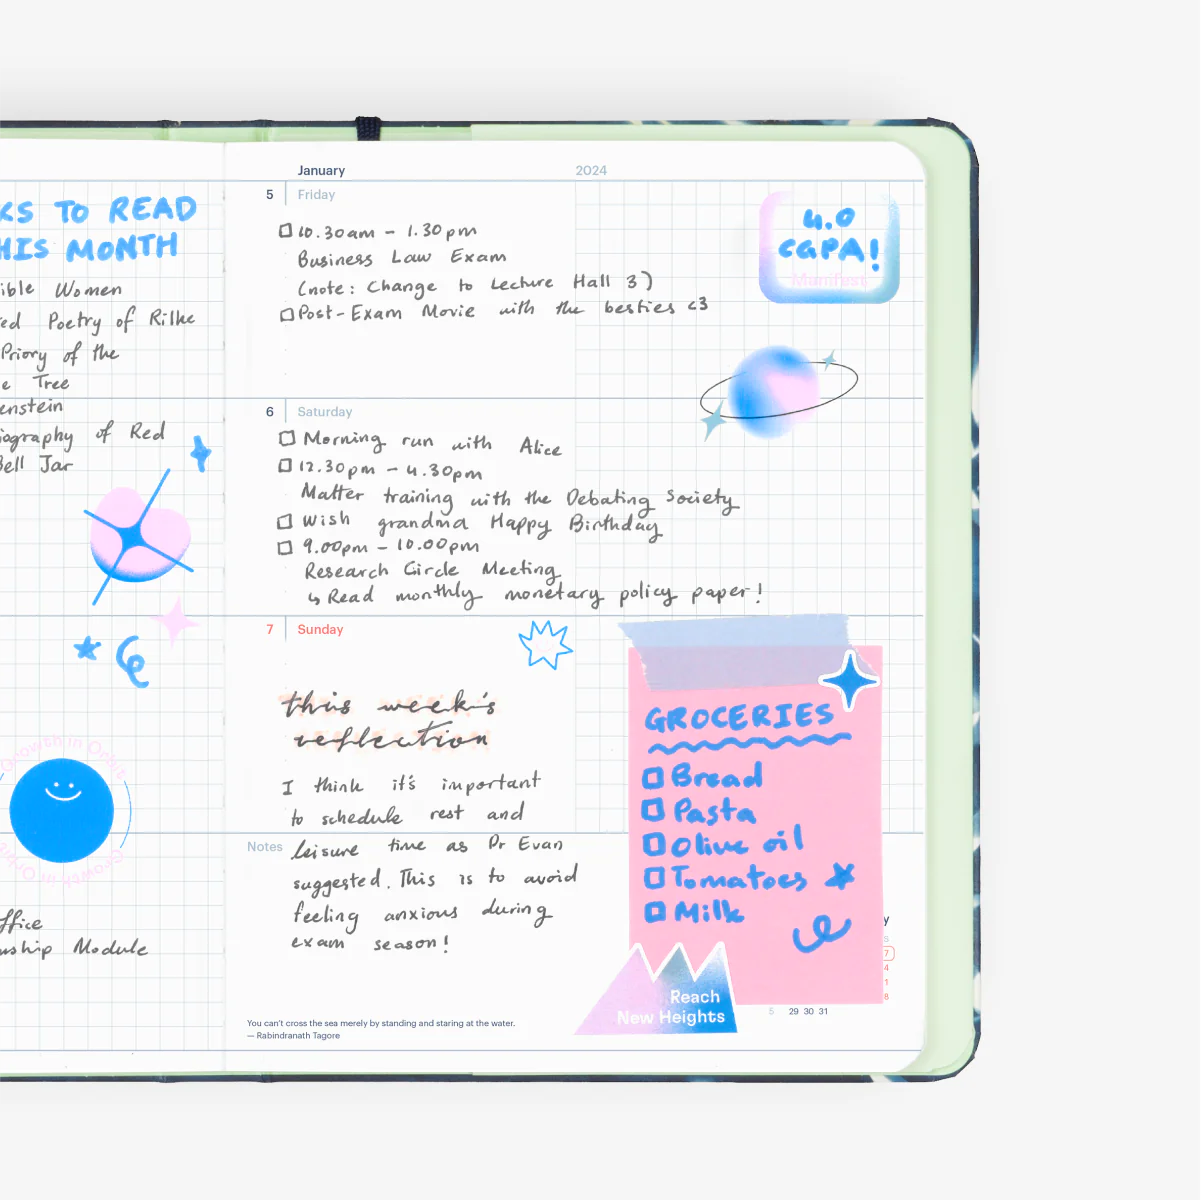 KS TO READ
HIS MONTH
ible Women
ed Poetry of Rilke
Priory of the
e Tree
enstein
iography of Red
Bell Jar
Growth in Orbit
Growth in Orbit
ffice
nship Module
January 2024
5 Friday
10.30am - 1.30pm
Business Law Exam
(note: Change to Lecture Hall 3)
Post-Exam Movie with the besties <3
4.0
CGPA!
Manifest
6 Saturday
Morning run with Alice
12.30pm - 4.30pm
Matter training with the Debating Society
Wish grandma Happy Birthday
9.00pm - 10.00pm
Research Circle Meeting
↳ Read monthly monetary policy paper!
7 Sunday
this week's
reflection
I think it's important
to schedule rest and
Notes
leisure time as Dr Evan
suggested. This is to avoid
feeling anxious during
exam season!
GROCERIES
Bread
Pasta
Olive oil
Tomatoes
Milk
Reach
New Heights
y
S
7
4
1
8
5 29 30 31
You can't cross the sea merely by standing and staring at the water.
— Rabindranath Tagore